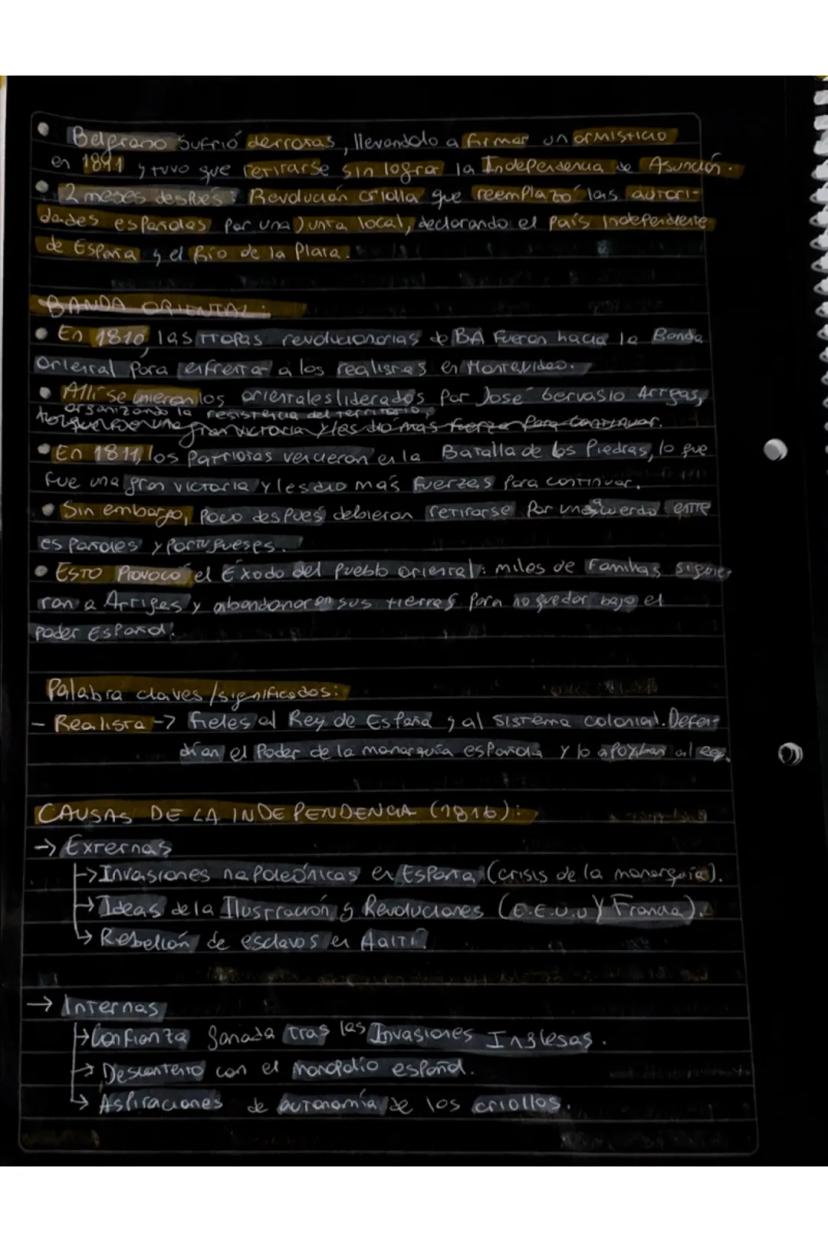 • Belgrano sufrió derrotas, llevandolo a firmar un armisticio
en 1811 y tuvo que retirarse sin lograr la Independencia de Asunción.
• 2 meses después: Revolución criolla que reemplazó las autori-
dades españolas por una Junta local, declarando el país Independiente
de España y el Río de la Plata.
BANDA ORIENTAL:
• En 1810, las tropas revolucionarias de BA fueron hacia la Banda
Oriental para enfrentar a los realistas en Montevideo.
• Allí se unieron los orientales liderados por José Gervasio Artigas,
organizando la resistencia del territorio,
fue una gran victoria y les dio más fuerza para continuar.
• En 1811, los patriotas vencieron en la Batalla de las Piedras, lo que
fue una gran victoria y les dio más fuerzas para continuar.
• Sin embargo, poco después debieron retirarse por un acuerdo entre
españoles y portugueses.
• Esto provocó el Éxodo del pueblo oriental: miles de familias siguie-
ron a Artigas y abandonaron sus tierras para no quedar bajo el
poder español.
Palabra claves/significados:
- Realista -> fieles al Rey de España y al sistema colonial. Defen-
dían el poder de la monarquía española y lo apoyaban al rey.
CAUSAS DE LA INDEPENDENCIA (1816):
-> Externas
-> Invasiones napoleónicas en España (crisis de la monarquía).
-> Ideas de la Ilustración y Revoluciones (E.E.U.U y Francia).
-> Rebelión de esclavos en Haití.
-> Internas
-> Confianza ganada tras las Invasiones Inglesas.
-> Descontento con el monopolio español.
-> Aspiraciones de autonomía de los criollos.